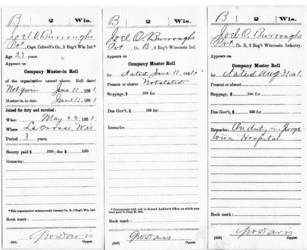 B | 2 | Wis.
Joel O. Burroughs
Pvt., Capt. Colwell's Co., 2 Reg't Wis. Inf.*
Age 23 years.
Appeared on
Company Muster-in Roll
of the organization named above. Roll dated
Not given June 11, 1861.
Muster-in to date June 11, 1861.
Joined for duty and enrolled:
When May 23, 1861.
Where La Crosse, Wis.
Period 3 years.
Bounty paid $ 100; due $ 100
Remarks:
Book mark:
G W Davis
Copyist.
B | 2 | Wis.
Joel O. Burroughs
Pvt., Co. B, 2 Reg't Wisconsin Inf.
Appeared on
Company Muster Roll
for dated June 11, 1861.*
Present or absent Not stated
Stoppage, $ 100 for
Due Gov't, $ 100 for
Remarks:
Book mark:
G W Davis
Copyist.
B | 2 | Wis.
Joel O. Burroughs
Pvt., Co. B, 2 Reg't Wisconsin Infantry.
Appears on
Company Muster Roll
for dated Aug 31, 1861.
Present or absent
Stoppage, $ 100 for
Due Gov't, $ 100 for
Remarks: On duty in George
town Hospital
Book mark:
G W Davis
Copyist.